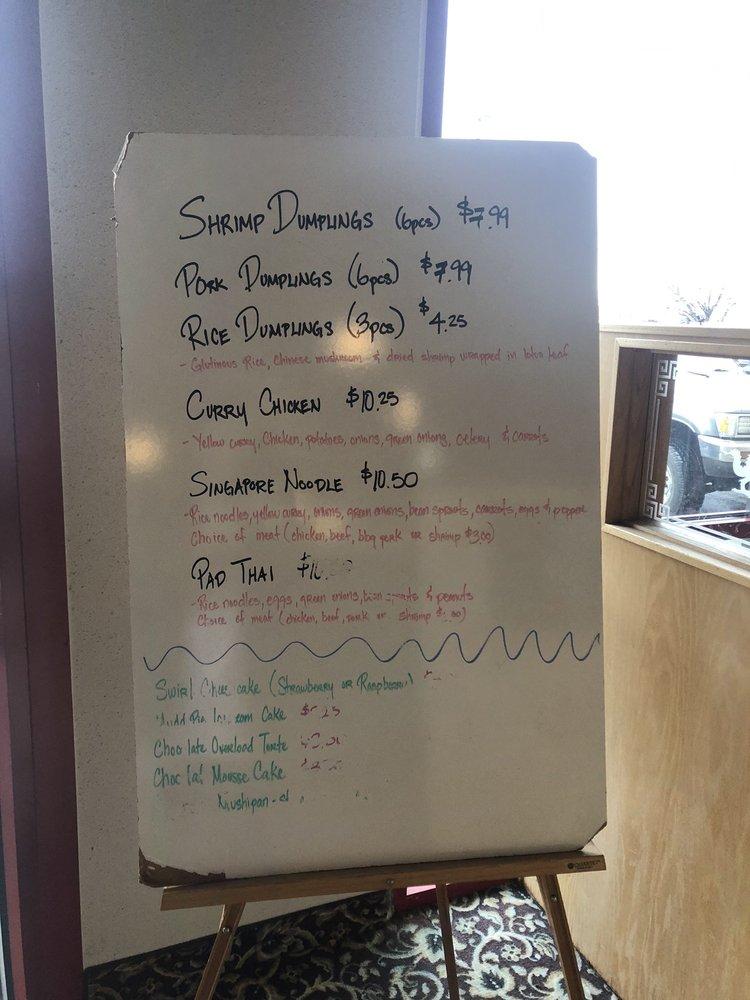 SHRIMP DUMPLINGS (6pcs) $7.99
PORK DUMPLINGS (6pcs) $7.99
RICE DUMPLINGS (3pcs) $4.25
- Glutinous Rice, Chinese mushroom & dried shrimp wrapped in lotus leaf
CURRY CHICKEN $10.25
- Yellow curry, Chicken, potatoes, onions, green onions, celery & carrots
SINGAPORE NOODLE $10.50
- Rice noodles, yellow curry, onions, green onions, bean sprouts, carrots, eggs & pepper
Choice of meat (chicken, beef, bbq pork or shrimp $3.00)
PAD THAI
- Rice noodles, eggs, green onions, bean sprouts & peanuts
Choice of meat (chicken, beef, pork or shrimp
Swirl Cheesecake (Strawberry or Raspberry)
Cake
Chocolate Overload Torte
Chocolat Mousse Cake